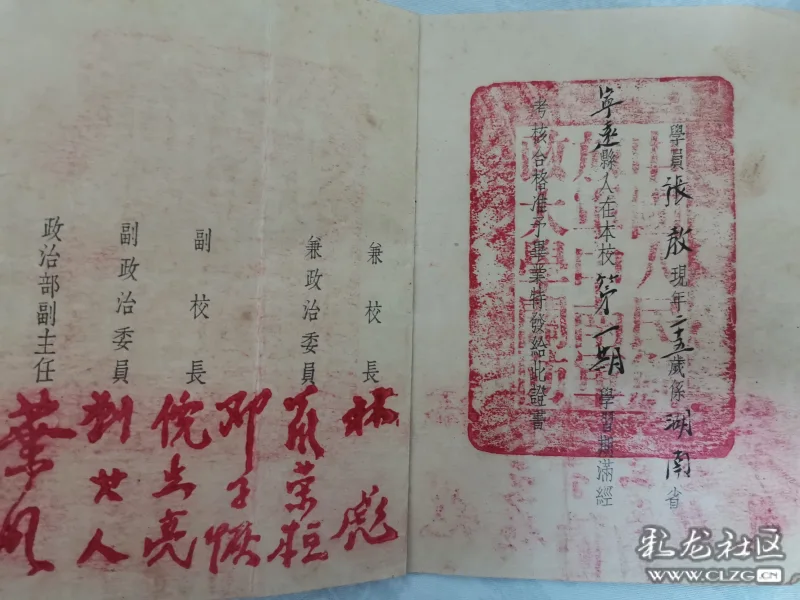 學員張敖現年二十五歲係湖南省
寧遠縣人在本校第一期學習期滿經
考核合格准予畢業特發給此證書
兼校長 林彪
兼政治委員 羅榮桓
鄧子恢
副校長 倪志亮
副政治委員 劉型人
政治部副主任 葉
彩龙社区
WWW.CLZG.CN